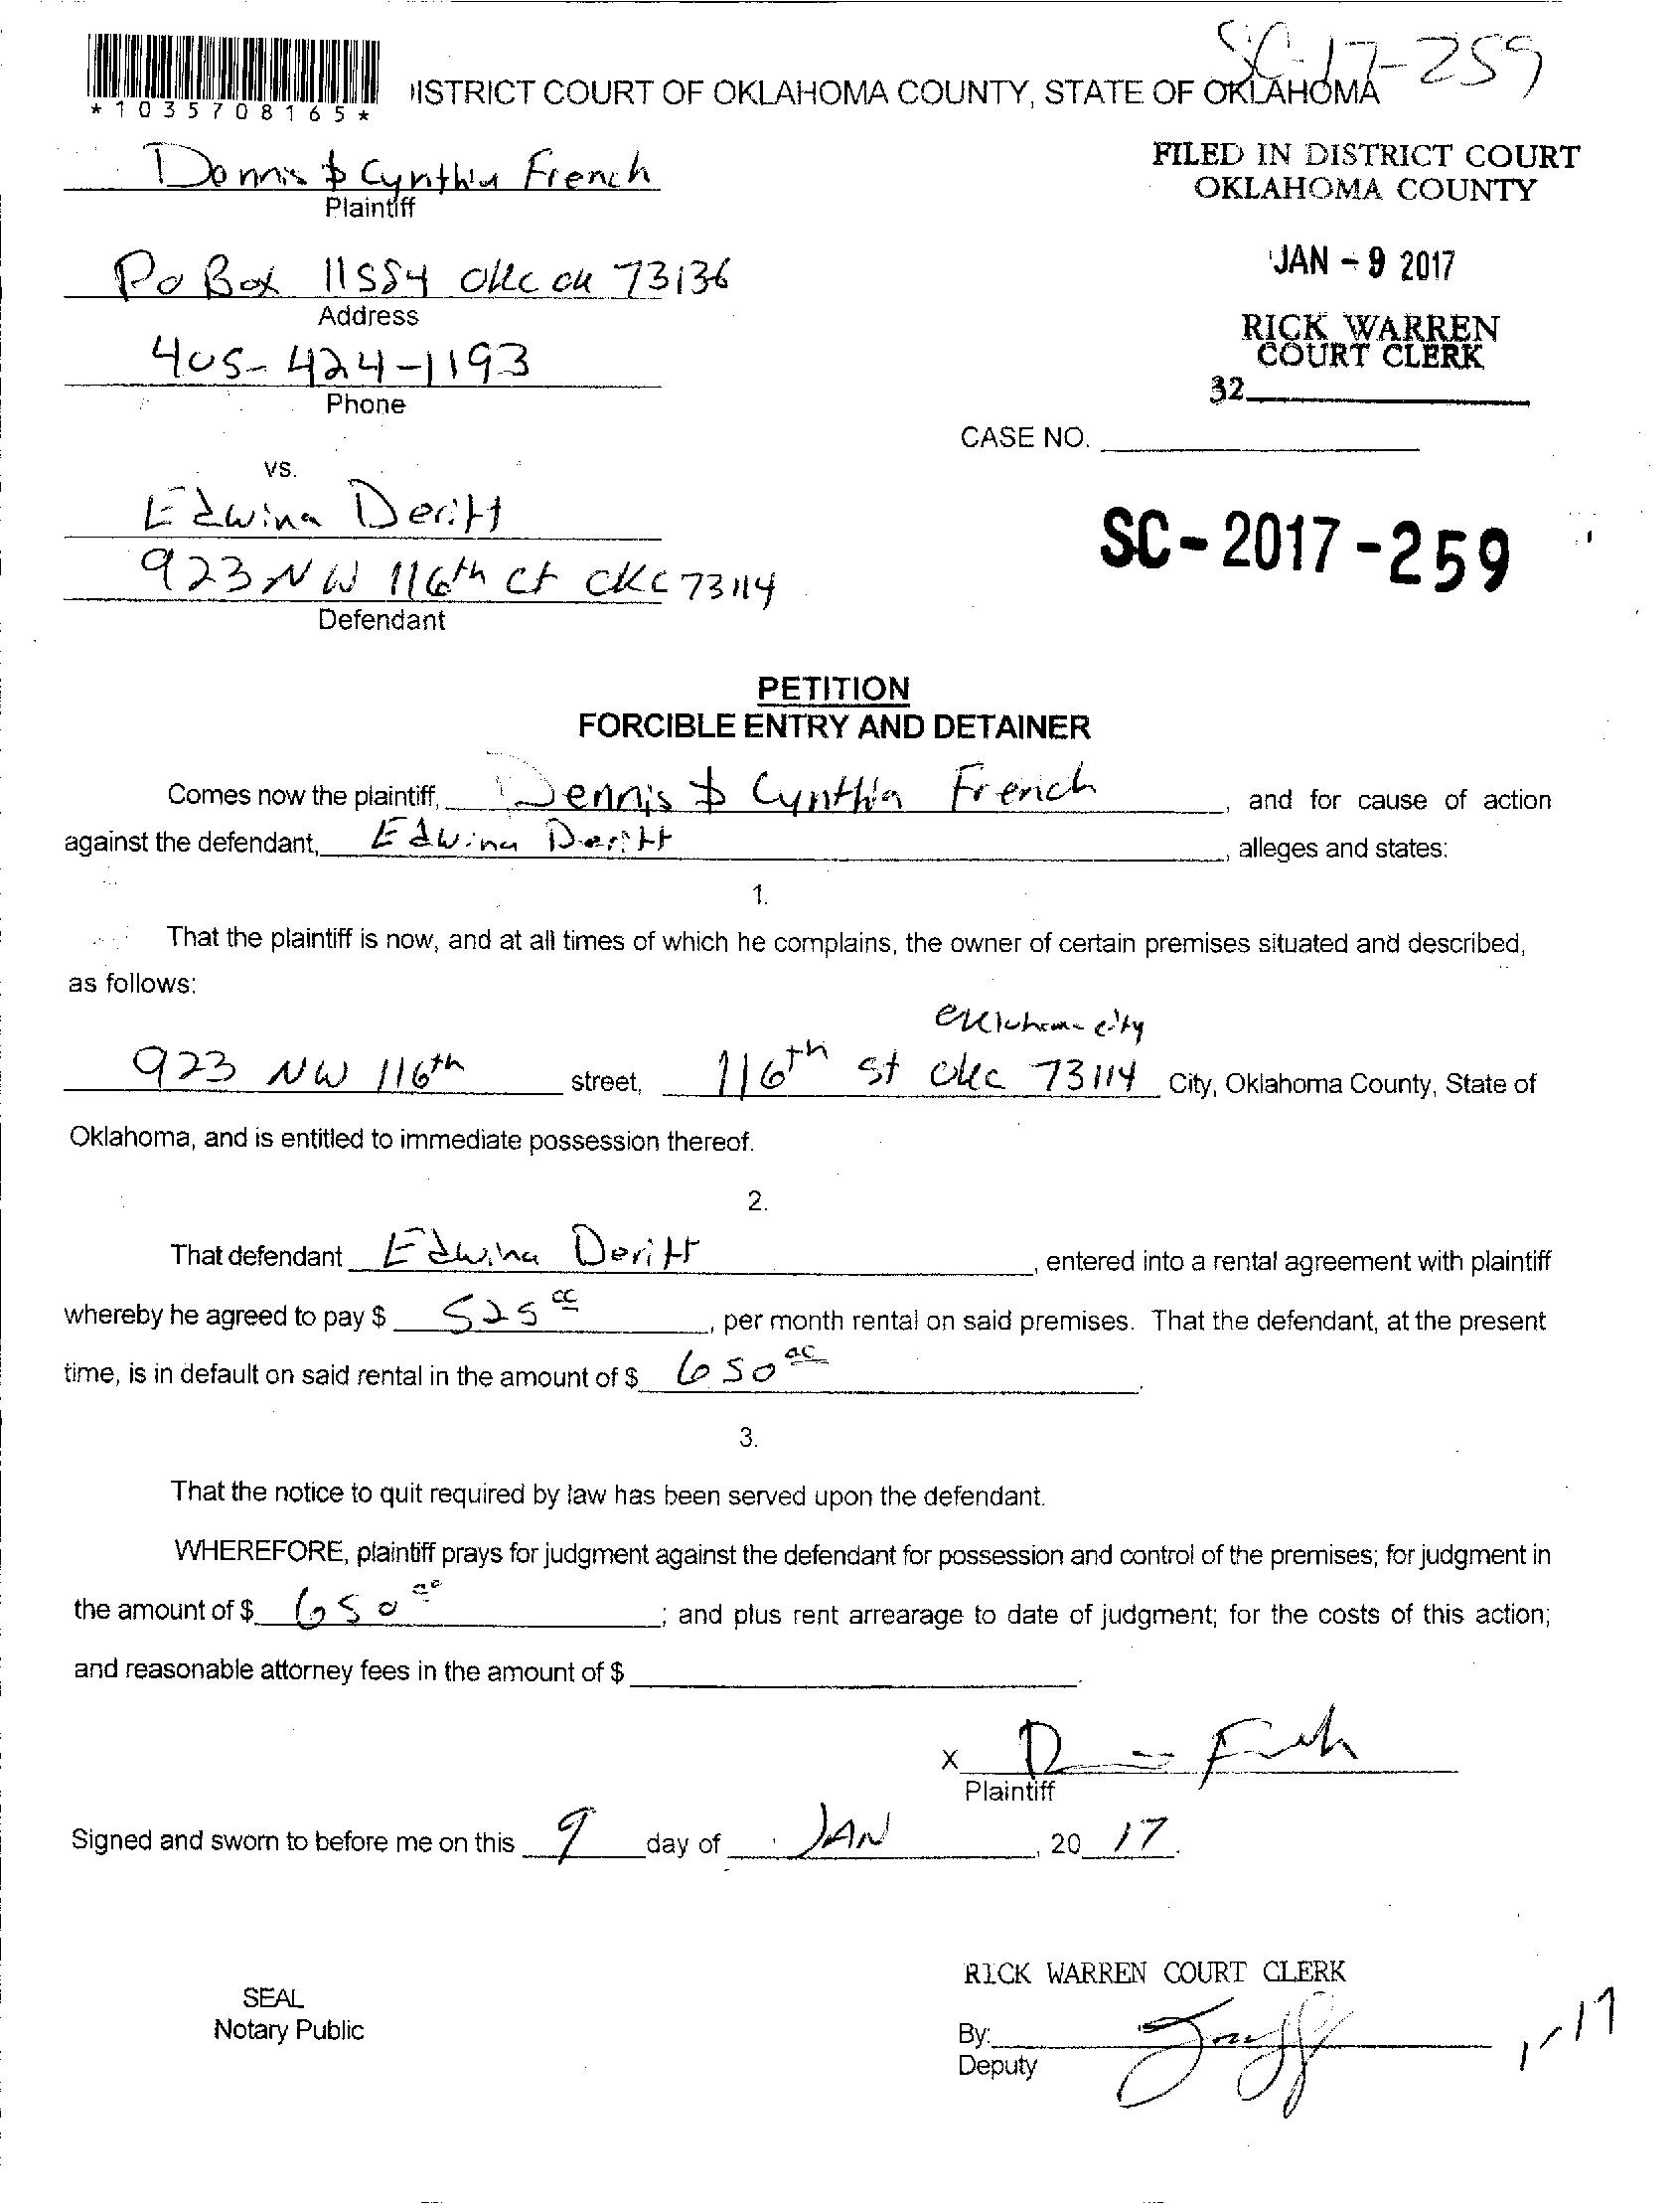 SC-17-259
*1035708165*
ISTRICT COURT OF OKLAHOMA COUNTY, STATE OF OKLAHOMA
Dennis & Cynthia French
Plaintiff
FILED IN DISTRICT COURT
OKLAHOMA COUNTY
JAN - 9 2017
RICK WARREN
COURT CLERK
32
Po Box 11554 OKC OK 73136
Address
405-424-1193
Phone
CASE NO.
vs.
Edwina Deritt
923 NW 116th ct OKC 73114
Defendant
SC-2017-259
PETITION
FORCIBLE ENTRY AND DETAINER
Comes now the plaintiff, Dennis & Cynthia French, and for cause of action
against the defendant, Edwina Deritt, alleges and states:
1.
That the plaintiff is now, and at all times of which he complains, the owner of certain premises situated and described,
as follows:
Oklahoma city
923 NW 116th street, 116th st OKC 73114 City, Oklahoma County, State of
Oklahoma, and is entitled to immediate possession thereof.
2.
That defendant Edwina Deritt, entered into a rental agreement with plaintiff
whereby he agreed to pay $ 525 00, per month rental on said premises. That the defendant, at the present
time, is in default on said rental in the amount of $ 650 00.
3.
That the notice to quit required by law has been served upon the defendant.
WHEREFORE, plaintiff prays for judgment against the defendant for possession and control of the premises; for judgment in
the amount of $ 650 00; and plus rent arrearage to date of judgment; for the costs of this action;
and reasonable attorney fees in the amount of $.
X
Plaintiff
Signed and sworn to before me on this 9 day of JAN, 20 17.
RICK WARREN COURT CLERK
SEAL
Notary Public
By:
Deputy